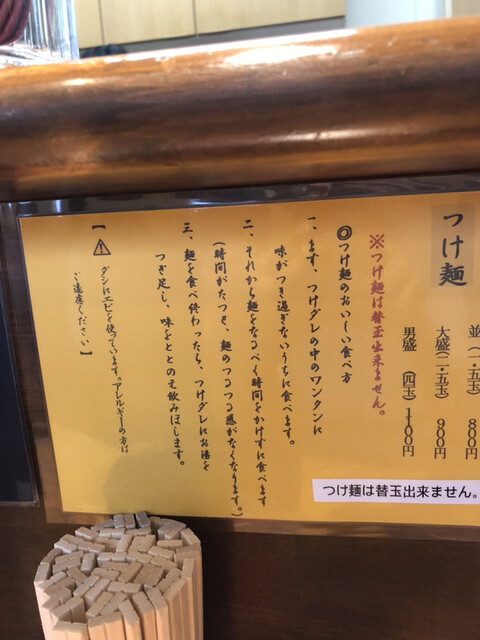 つけ麺
並(一・五玉)800円
大盛(二・五玉)900円
男盛(四玉)1100円
※つけ麺は替玉出来ません。
◎つけ麺のおいしい食べ方
一、まず、つけダレの中のワンタンに
味がつき過ぎないうちに食べます。
二、それから麺をなるべく時間をかけずに食べます
(時間がたつと、麺のつるつる感がなくなります。)
三、麺を食べ終わったら、つけダレにお湯を
つぎ足し、味をととのえ飲みほします。
【⚠ダシにエビを使っています。アレルギーの方は
ご遠慮ください】
つけ麺は替玉出来ません。